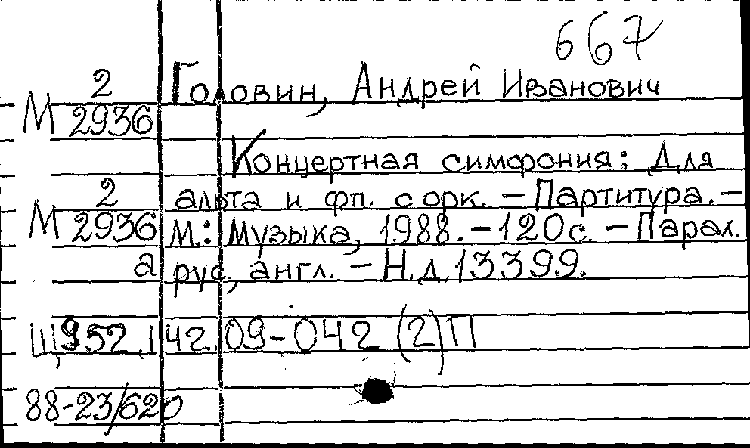 667
2
М 2936
Головин, Андрей Иванович
Концертная симфония: Для
альта и фп. с орк. — Партитура. —
М.: Музыка, 1988. — 120 с. — Парал.
рус., англ. — Н.д. 13399.
2
М 2936
а
Щ952.142.09-042 (2)П
88-23/620